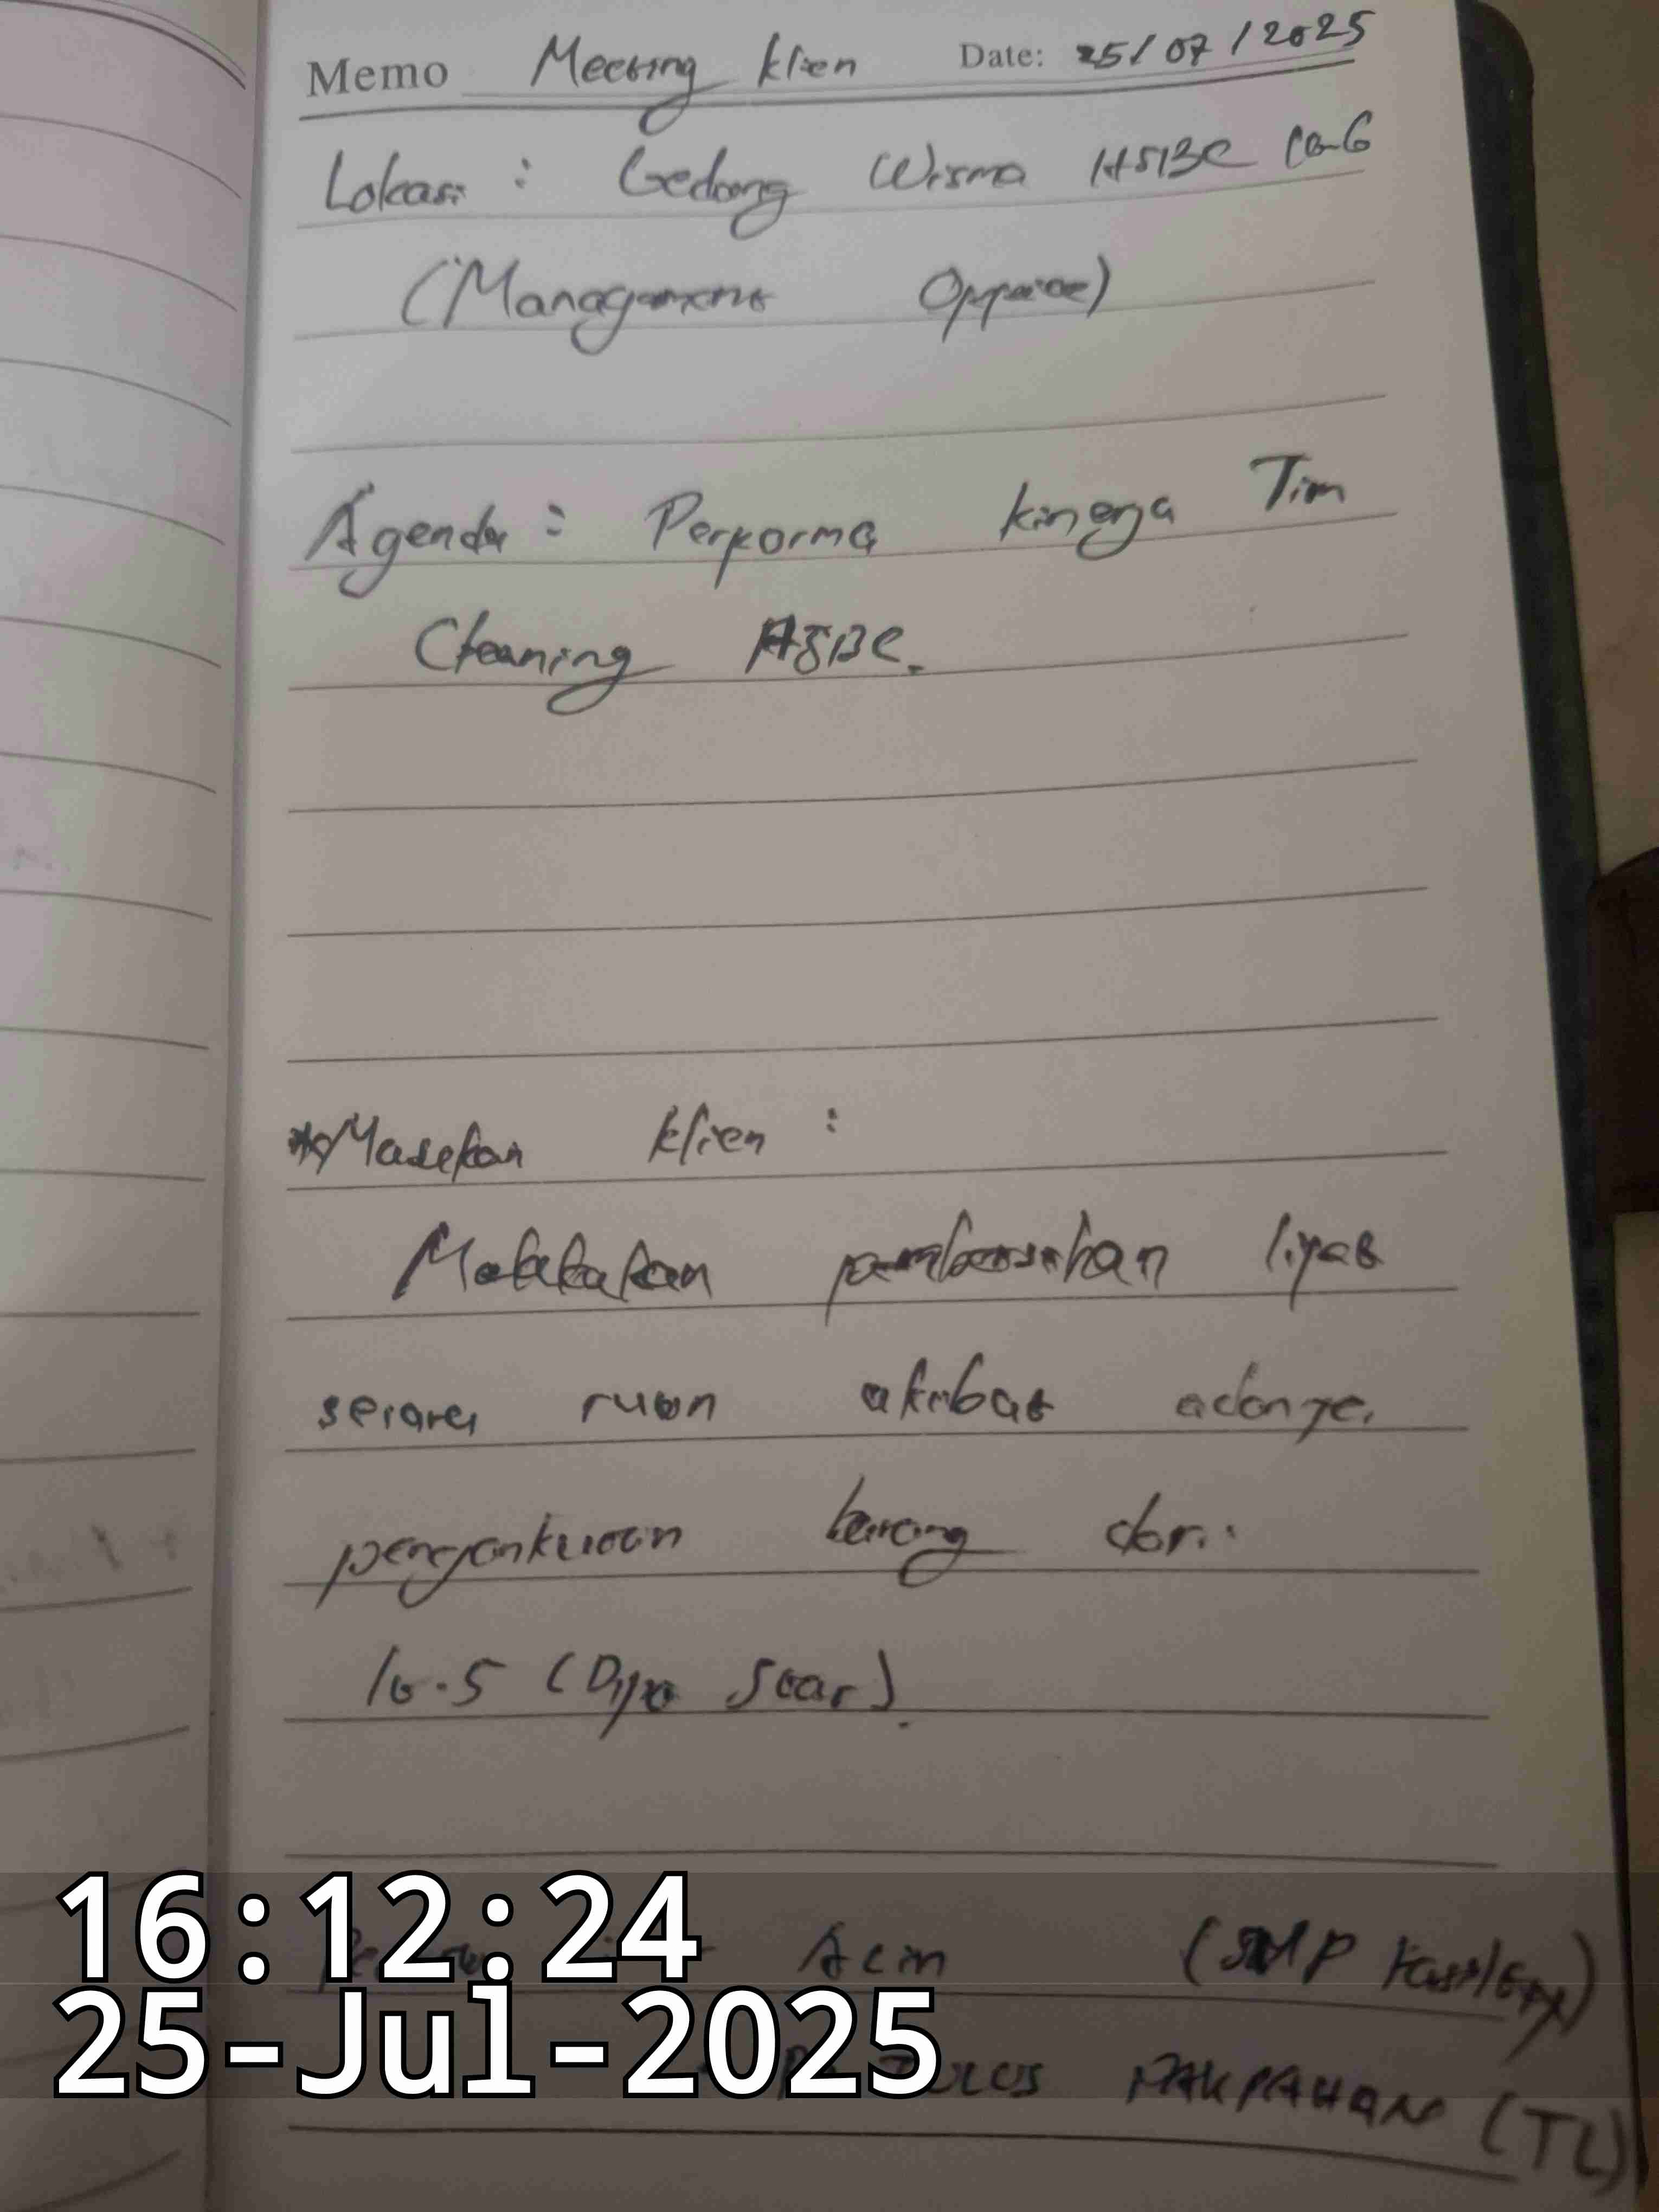 Memo Meeting klien Date: 25/07/2025
Lokasi : Gedung Wisma HSBC
(Management Office)
Agenda : Performa kinerja Tim
Cleaning HSBC.
* Masukan klien :
Melakukan pembersihan lift
secara rutin akibat adanya
pengankutan barang dari
(Dipo Star).
16:12:24
Acin (SMP
25-Jul-2025
PAKPAHAN (TL)